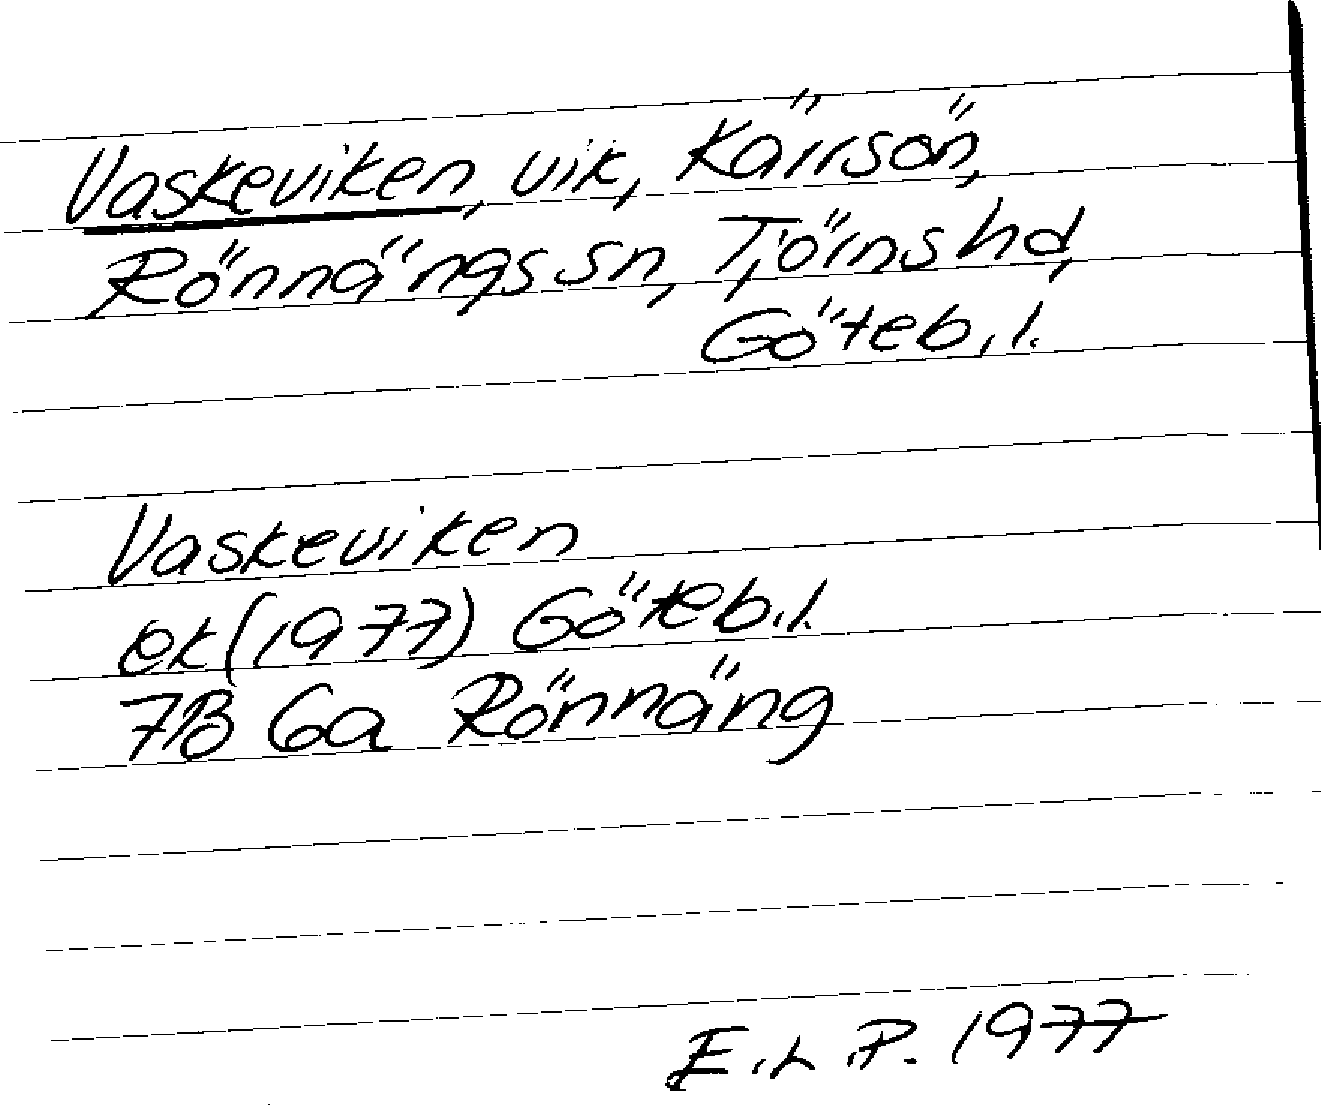 Vaskeviken, vik, Kärrsön,
Rönnängs sn, Tjörns hd,
Göteb. l.
Vaskeviken
ek (1977) Göteb. l.
7B 6a Rönnäng
E. L. P. 1977